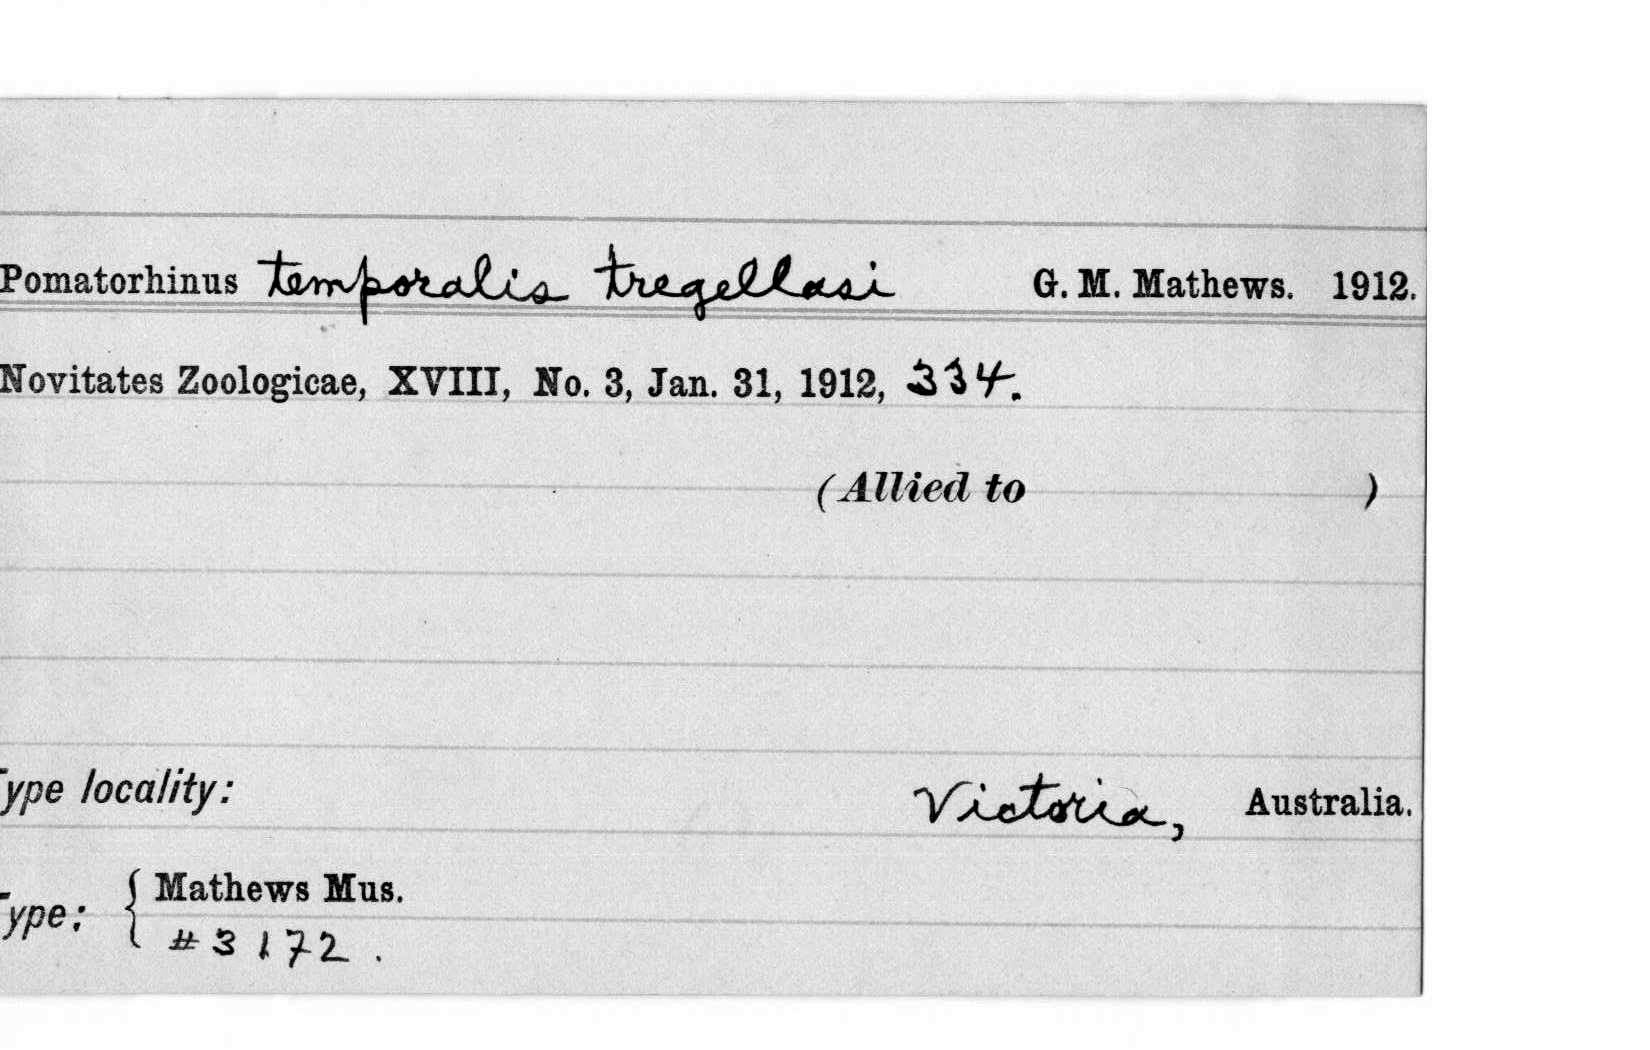 Pomatorhinus temporalis tregellasi G. M. Mathews. 1912.
Novitates Zoologicae, XVIII, No. 3, Jan. 31, 1912, 334.
(Allied to )
Type locality: Victoria, Australia.
Type: { Mathews Mus.
#3172.